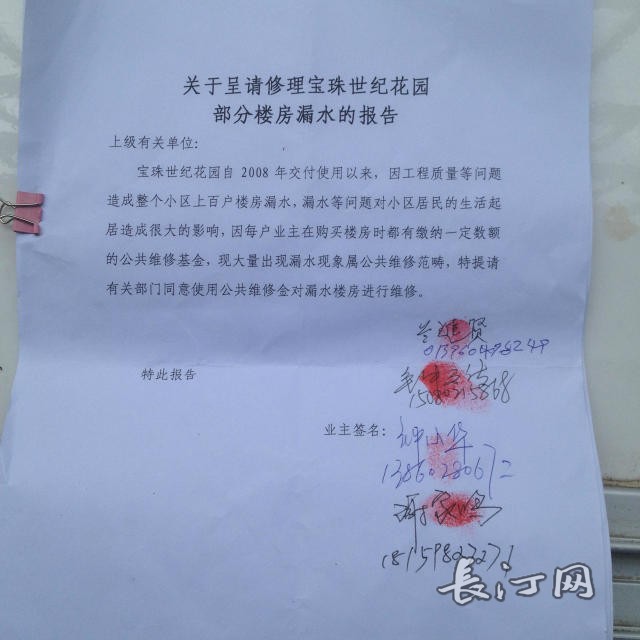 关于呈请修理宝珠世纪花园
部分楼房漏水的报告
上级有关单位:
宝珠世纪花园自 2008 年交付使用以来，因工程质量等问题
造成整个小区上百户楼房漏水，漏水等问题对小区居民的生活起
居造成很大的影响，因每户业主在购买楼房时都有缴纳一定数额
的公共维修基金，现大量出现漏水现象属公共维修范畴，特提请
有关部门同意使用公共维修金对漏水楼房进行维修。
特此报告
业主签名:
钟小华
13860280672
长汀网